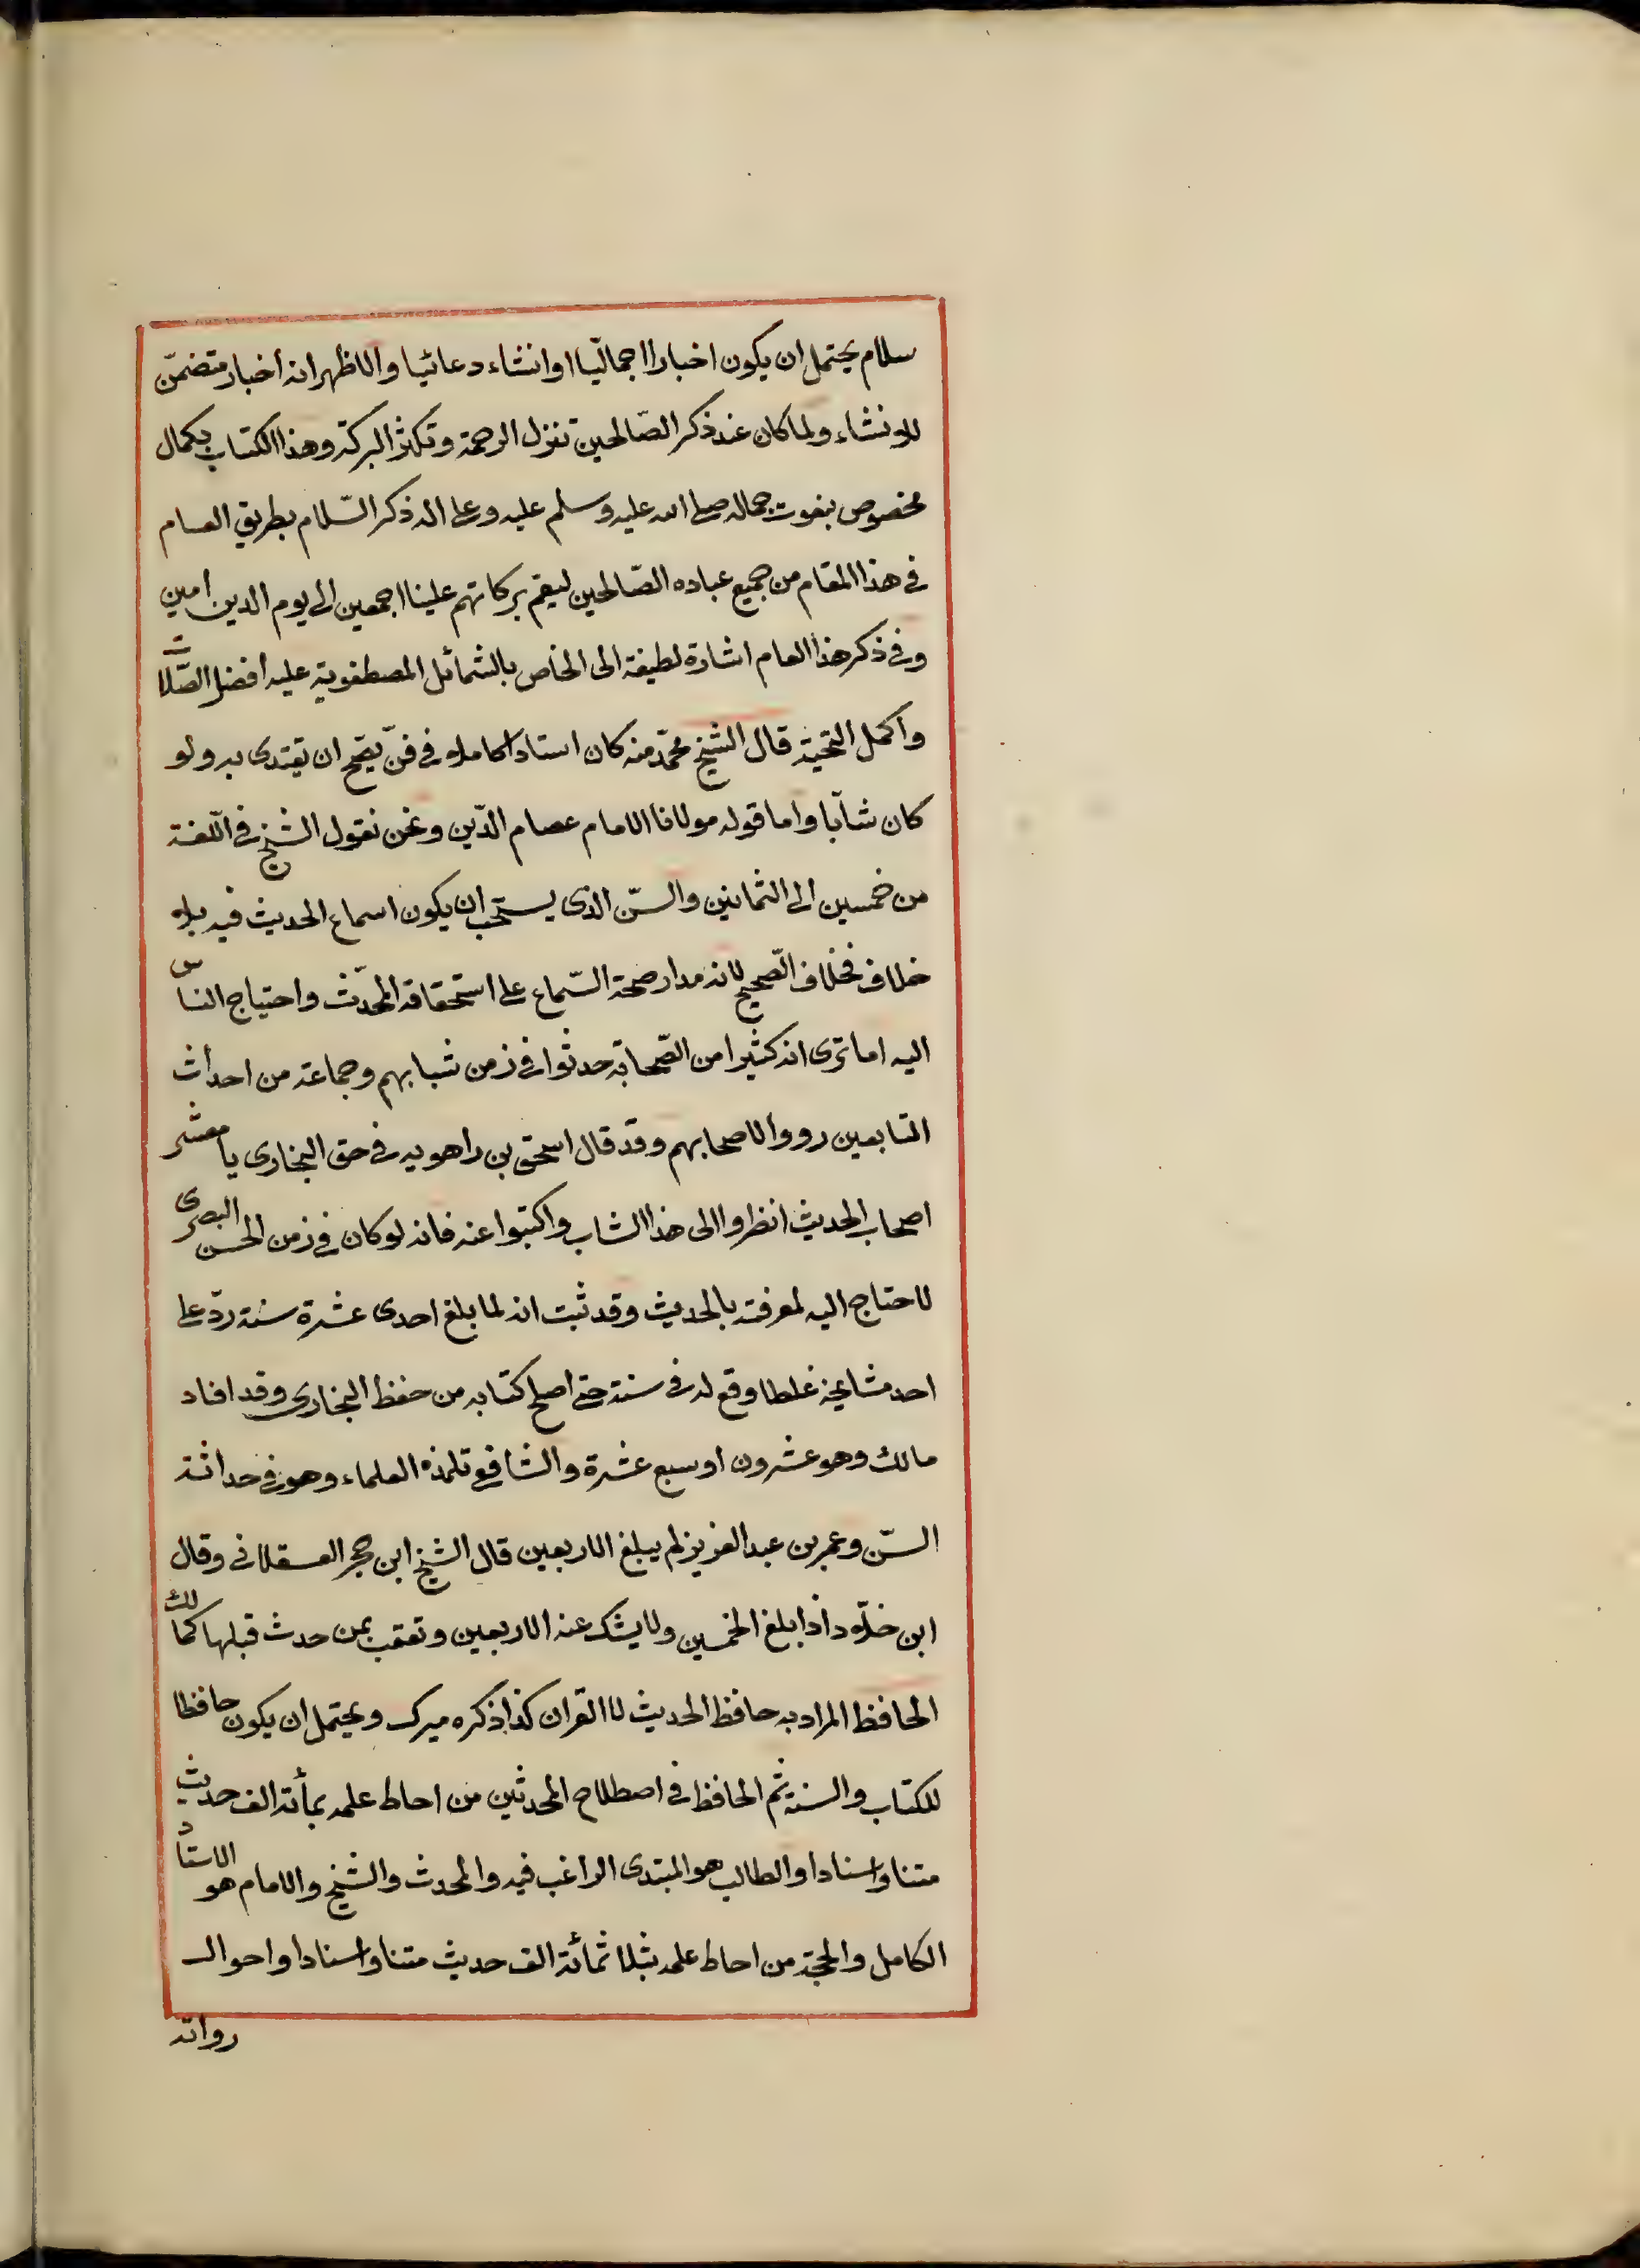 سلام يحتمل ان يكون اخبارا اجماليا او انشاء دعائيا والاظهر انه أخبار متضمّن
للانشاء ولما كان عند ذكر الصّالحين تنزل الرحمة وتكثر البركة وهذا الكتاب بكمال
مخصوص بنعوت جماله صلى الله عليه وسلم عليه وعلى اله ذكر السّلام بطريق العام
فى هذا المقام من جميع عباده الصّالحين ليعم بركاتهم علينا اجمعين الى يوم الدين أمين
وفى ذكر هذا العام اشارة لطيفة الى الخاص بالشمائل المصطفوية عليه افضل الصّلات
واكمل التحيّة قال الشيخ محمّد منه كان استادا كاملا فى فنّ يصّح ان يقتدى به ولو
كان شابّا واما قوله مولانا الامام عصام الدّين ونحن نقول الشيخ فى اللّغة
من خمسين الى الثمانين والسنّ الذى يستحب ان يكون اسماع الحديث فيه بلا
خلاف فخلاف الصّحيح لانه مدار صحة السّماع على استحقاقه المحدّث واحتياج الناس
اليه اما ترى انه كثيرا من الصّحابة حدثوا فى زمن شبابهم وجماعة من احداث
التابعين رووا لاصحابهم وقد قال اسحق بن راهويه فى حق البخارى يا معشر
اصحاب الحديث انظروا الى هذا الشاب واكتبوا عنه فانه لو كان فى زمن الحسن البصرى
لاحتاج اليه لمعرفته بالحديث وقد ثبت انه لما بلغ احدى عشرة سنة ردّ على
احد مشايخه غلطا وقع له فى سنة حتى اصلح كتابه من حفظ البخارى وقد افاد
مالك وهو عشرون او سبع عشرة والشافعى تلمذه العلماء وهو فى حداثة
السنّ وعمر بن عبد العزيز لم يبلغ الاربعين قال الشيخ ابن حجر العسقلانى وقال
ابن خلّاد اذا بلغ الخمسين ولا يشك عنه الاربعين وتعقب بمن حدث قبلها كمالك
الحافظ المراد به حافظ الحديث لا القران كذا ذكره ميرك ويحتمل ان يكون حافظا
للكتاب والسنة ثم الحافظ فى اصطلاح المحدثين من احاط علمه بمأئة الف حديث
متنا واسنادا والطالب هو المبتدى الراغب فيه والمحدث والشيخ والامام هو الاستاد
الكامل والحجة من احاط علمه بثلاثمائة الف حديث متنا واسنادا واحوال
رواته